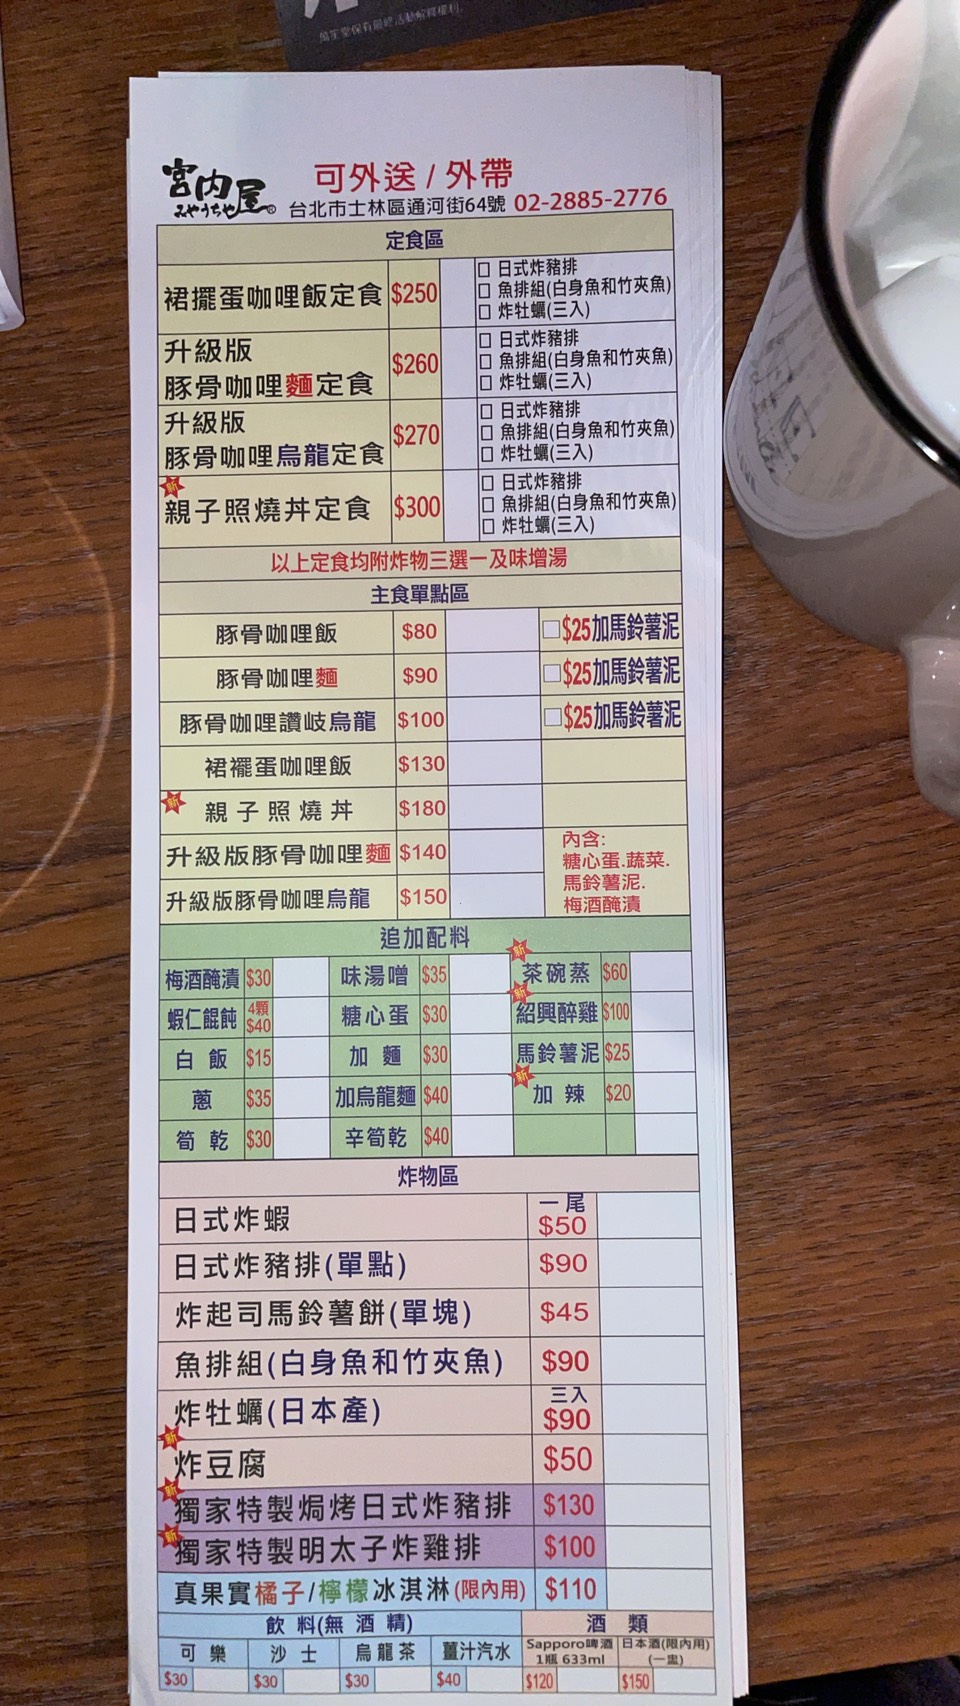 萬芳堂保有最終活動解釋權利.
宮內屋®
みやうちや
可外送 / 外帶
台北市士林區通河街64號 02-2885-2776
定食區
裙擺蛋咖哩飯定食 $250
□ 日式炸豬排
□ 魚排組(白身魚和竹夾魚)
□ 炸牡蠣(三入)
升級版
豚骨咖哩麵定食 $260
□ 日式炸豬排
□ 魚排組(白身魚和竹夾魚)
□ 炸牡蠣(三入)
升級版
豚骨咖哩烏龍定食 $270
□ 日式炸豬排
□ 魚排組(白身魚和竹夾魚)
□ 炸牡蠣(三入)
新 親子照燒丼定食 $300
□ 日式炸豬排
□ 魚排組(白身魚和竹夾魚)
□ 炸牡蠣(三入)
以上定食均附炸物三選一及味增湯
主食單點區
豚骨咖哩飯 $80 □$25加馬鈴薯泥
豚骨咖哩麵 $90 □$25加馬鈴薯泥
豚骨咖哩讚岐烏龍 $100 □$25加馬鈴薯泥
裙襬蛋咖哩飯 $130
新 親子照燒丼 $180
升級版豚骨咖哩麵 $140
升級版豚骨咖哩烏龍 $150
內含:
糖心蛋.蔬菜.
馬鈴薯泥.
梅酒醃漬
追加配料
梅酒醃漬 $30 味湯噌 $35 新 茶碗蒸 $60
蝦仁餛飩 4顆 $40 糖心蛋 $30 新 紹興醉雞 $100
白飯 $15 加麵 $30 馬鈴薯泥 $25
蔥 $35 加烏龍麵 $40 新 加辣 $20
筍乾 $30 辛筍乾 $40
炸物區
日式炸蝦 一尾 $50
日式炸豬排(單點) $90
炸起司馬鈴薯餅(單塊) $45
魚排組(白身魚和竹夾魚) $90
炸牡蠣(日本產) 三入 $90
新 炸豆腐 $50
新 獨家特製焗烤日式炸豬排 $130
新 獨家特製明太子炸雞排 $100
真果實橘子/檸檬冰淇淋(限內用) $110
飲料(無酒精) 酒類
可樂 沙士 烏龍茶 薑汁汽水 Sapporo啤酒 1瓶 633ml 日本酒(限內用) (一盅)
$30 $30 $30 $40 $120 $150